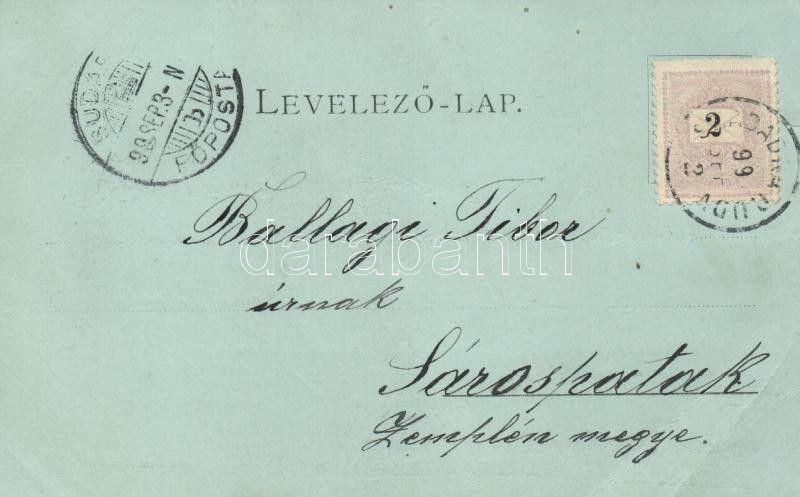 BUDAP
99 SEP. 3 - N
FŐPOSTA
LEVELEZŐ-LAP.
2
99
Ballagi Tibor
darabanth
úrnak
Sárospatak
Zemplén megye.